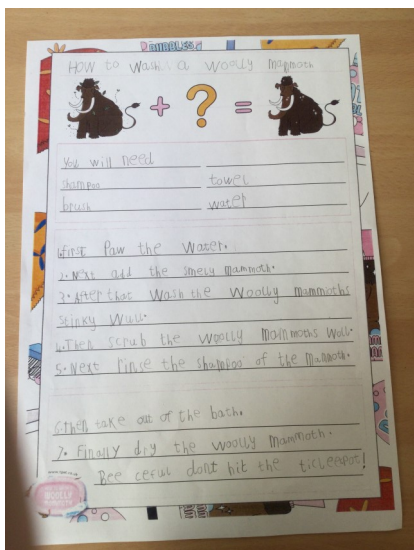 HOW to Wash a Woolly Mammoth
+ ? =
You will need
shampoo towel
brush water
1. first Paw the Water.
2. Next add the smely mammoth.
3. After that wash the Woolly mammoths
stinky Wull.
4. Then scrub the woolly mammoths Woll.
5. Next rinse the shampoo of the mammoth.
6. Then take out of the bath.
7. Finally dry the woolly mammoth.
Bee ceful dont hit the ticleespot!
WOOLLY